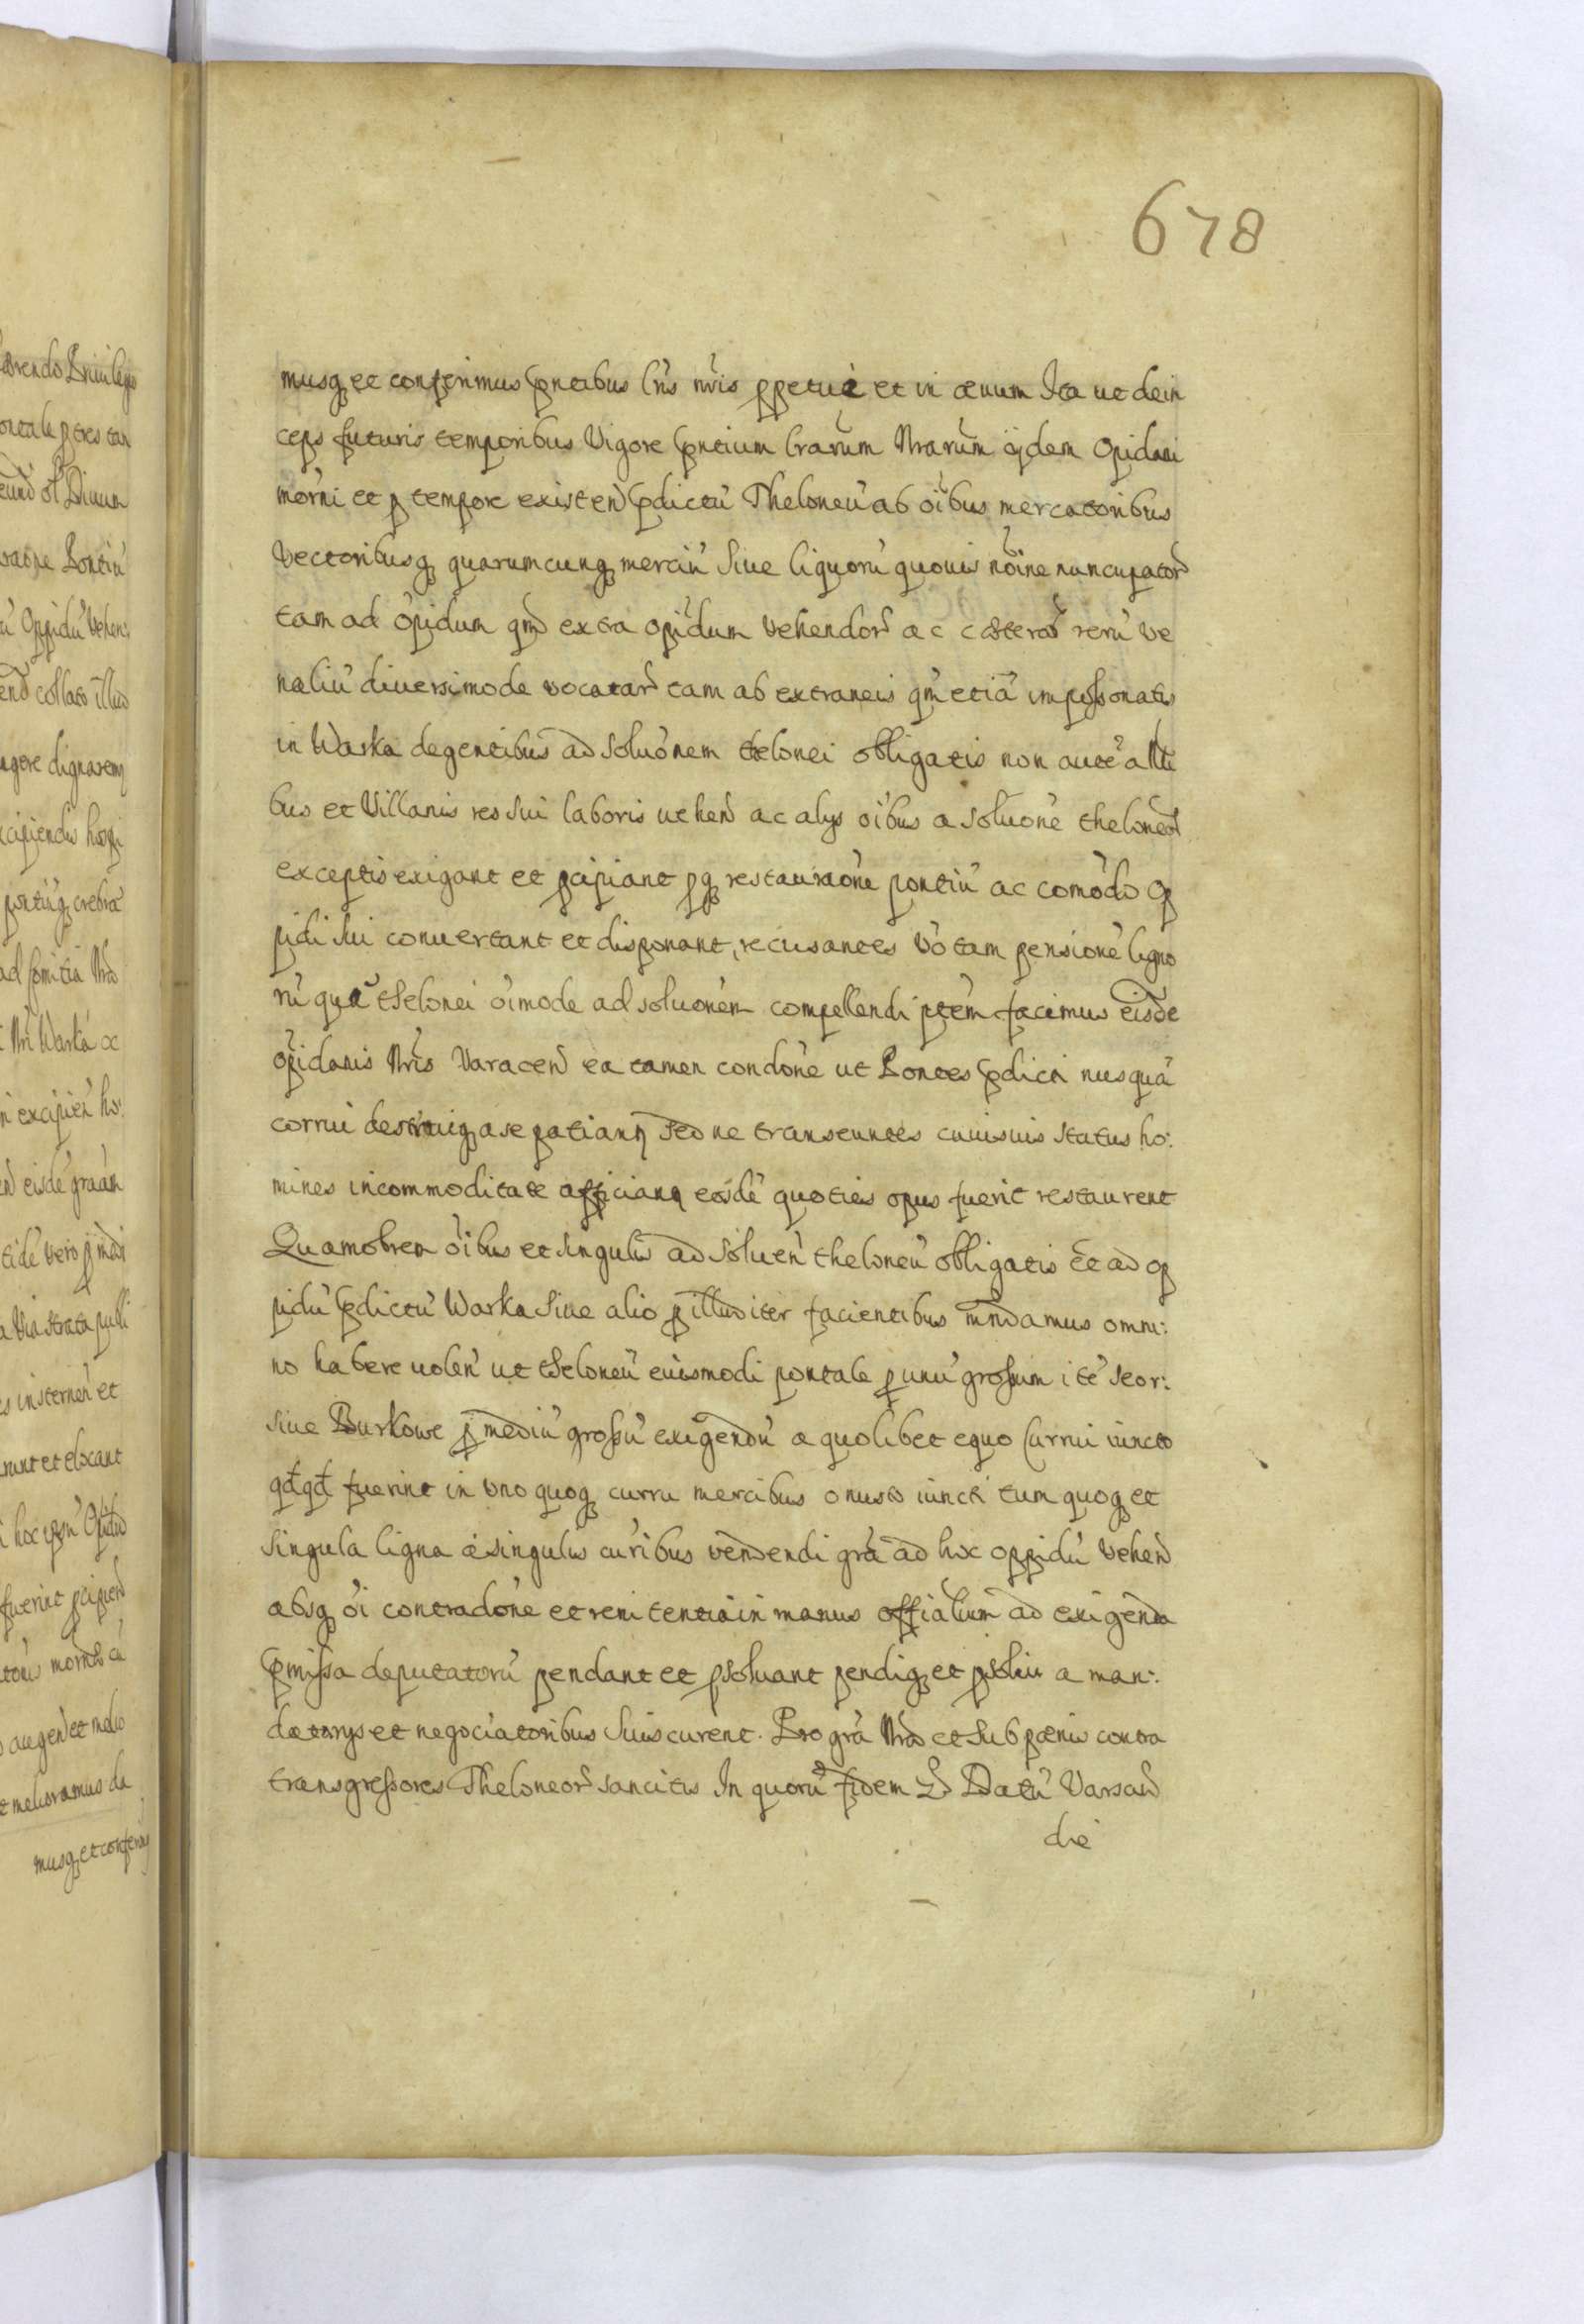 678
musq; et conferimus pntibus lris nris ppetue et in aeuum Ita ut dein
ceps futuris temporibus Vigore pntium lrarum Nrarum ijdem Opidani
moďrni et p tempore existen pdictu Theloneu ab oibus mercatoribus
Vectoribusq; quarumcunq; merciu siue liquoru quouis noine nuncupator
tam ad opidum qm extra opidum vehendor ac caeterar reru ve
naliu diuersimode vocatar tam ab extraneis qm etia impossonatis
in Warka degentibus ad soluonem thelonei obligatis non aute a Nti
bus et Villanis res sui laboris uehen ac alys oibus a soluone theloneor
exceptis exigant et pcipiant pq; restauraone pontiu ac comodo Op
pidi sui conuertant et disponant, recusantes vo tam pensione ligno
ru qua thelonei oimode ad soluonem compellendi ptem facimus eisde
opidanis Nris Varacen ea tamen condone ut Pontes pdicti nusqua
corrui destruiq; a se patiant sed ne transeuntes cuiusuis status ho:
mines incommoditate afficiant eosde quoties opus fuerit restaurent
Quamobrem oibus et singulis ad soluen theloneu obligatis et ad op
pidu pdictu Warka siue alio p illud iter facientibus mndamus omni:
no habere uolen ut theloneu euismodi pontale p unu grossum ite seor:
siue Burkowe p mediu grossu exigendu a quolibet equo Currui iuncto
qdqd fuerint in vno quoq; curru mercibus onusto iuncti tum quoq; et
singula ligna a singulis curibus vendendi gra ad hoc oppidu vehen
absq; oi contradone et renitentia in manus offialium ad exigenda
pmissa deputatoru pendant et psoluant pendiq; et psolui a man:
datarys et negociatoribus suis curent. Pro gra Nra et sub paenis contra
transgressores Theloneor sancitis In quoru fidem &c Datu Varsaw
die